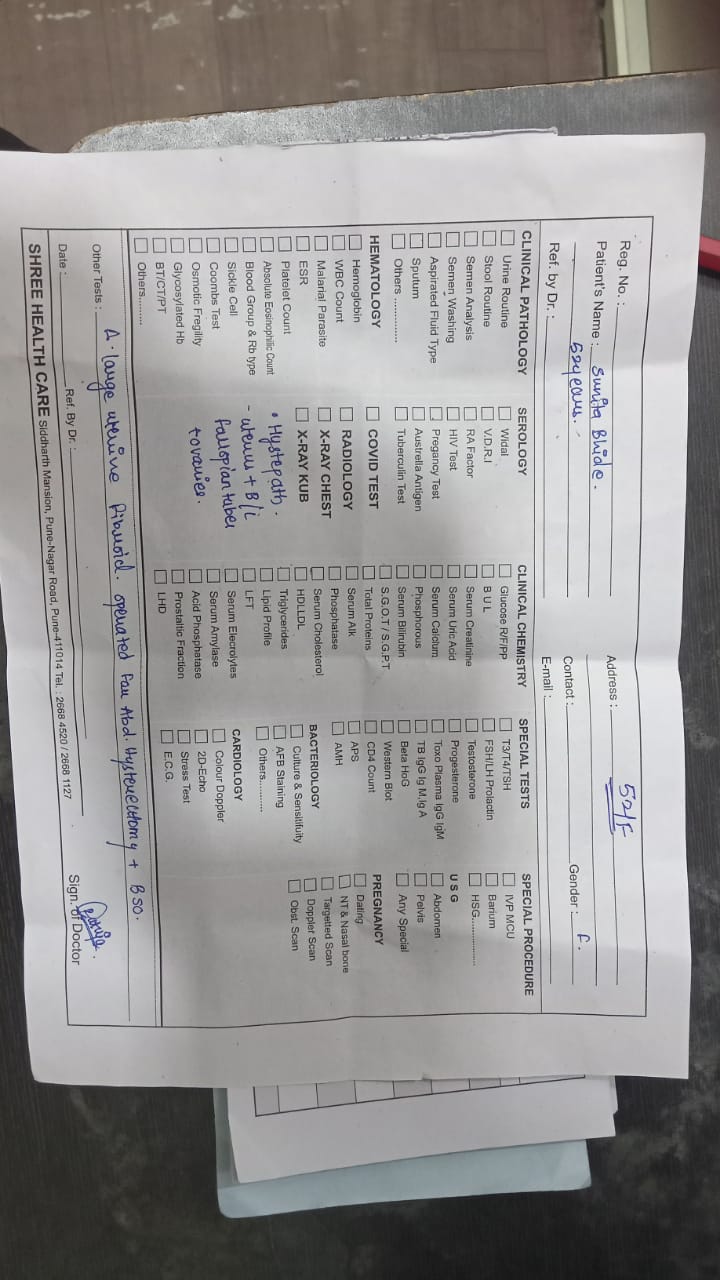 Reg. No. :
Patient's Name : Sunita Bhide.
52years.
Ref. by Dr. :
Address : 52/F
Contact :
Gender : F.
E-mail :
CLINICAL PATHOLOGY
Urine Routine
Stool Routine
Semen Analysis
Semen Washing
Aspirated Fluid Type
Sputum
Others ..............
HEMATOLOGY
Hemoglobin
WBC Count
Malarial Parasito
ESR
Platelet Count
Absolute Eosinophilic Count
Blood Group & Rb type
Sickle Cell
Coombs Test
Osmotic Fregility
Glycosylated Hb
BT/CT/PT
Others.........
SEROLOGY
Widal
V.D.R.I
RA Factor
HIV Test
Pregancy Test
Austrella Antigen
Tuberculin Test
COVID TEST
RADIOLOGY
X-RAY CHEST
X-RAY KUB
• Hystepath.
- uterus + B/L
fallopian tubes
+ ovaries.
CLINICAL CHEMISTRY
Glucose R/F/PP
B U L
Serum Creatinine
Serum Uric Acid
Serum Calcium
Phosphorous
Serum Bilinubin
S.G.O.T / S.G.P.T
Total Proteins
Serum Alk
Phosphatase
Serum Cholesterol
HDLLDL
Triglycerides
Lipid Profile
LFT
Serum Elecrolytes
Serum Amylase
Acid Phosphatase
Prostaltic Fraction
LHD
SPECIAL TESTS
T3/T4/TSH
FSH/LH Prolactin
Testosterone
Progesterone
Toxo Plasma IgG IgM
TB IgG Ig M.Ig A
Beta HoG
Western Blot
CD4 Count
APS
AMH
BACTERIOLOGY
Culture & Sensitifuity
AFB Staining
Others..........
CARDIOLOGY
Colour Doppler
2D-Echo
Stress Test
E.C.G.
SPECIAL PROCEDURE
IVP MCU
Barium
HSG................
U S G
Abdomen
Pelvis
Any Special
PREGNANCY
Dating
NT & Nasal bone
Targetted Scan
Doppler Scan
Obst. Scan
Other Tests : A. large uterine fibroid. operated Pan Abd. Hysterectomy + BSO.
Date :
Ref. By Dr. :
Sign. of Doctor
SHREE HEALTH CARE Siddharth Mansion, Pune-Nagar Road, Pune-411014 Tel. : 2668 4520 / 2668 1127